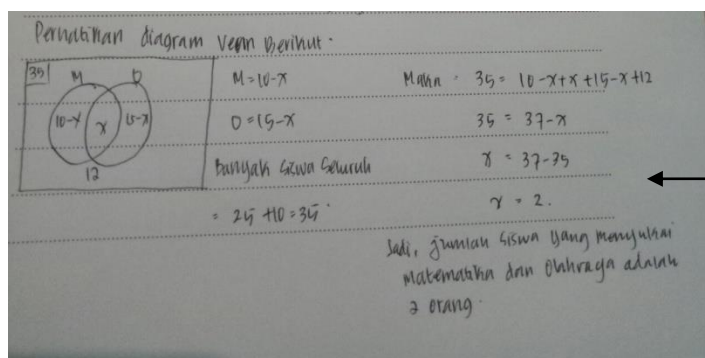 Perhatikan diagram Venn Berikut.
35
M O
10-x x 15-x
12
M = 10-x
O = 15-x
Banyak Siswa Seluruh
= 25 + 10 = 35.
Maka : 35 = 10-x+x+15-x+12
35 = 37-x
x = 37-35
x = 2.
Jadi, jumlah siswa yang menyukai
matematika dan Olahraga adalah
2 orang.